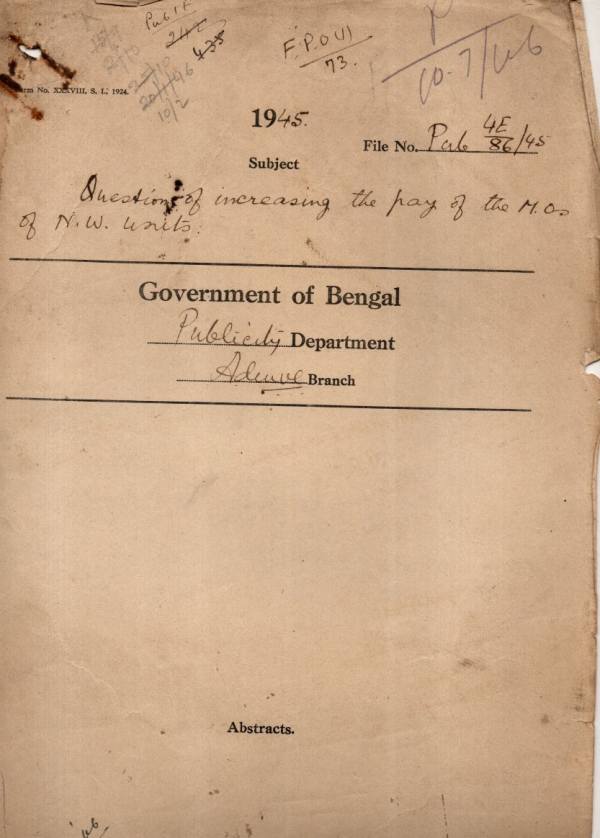 Pub I F
242
435
F.P.O VI
73.
10.7/46
20/1/46
10/2
Form No. XXXVIII, S. I., 1924.
1945.
File No. Pub 4E/86/45
Subject
Question of increasing the pay of the M.Os
of N.W. Units.
Government of Bengal
Publicity Department
Branch
Abstracts.